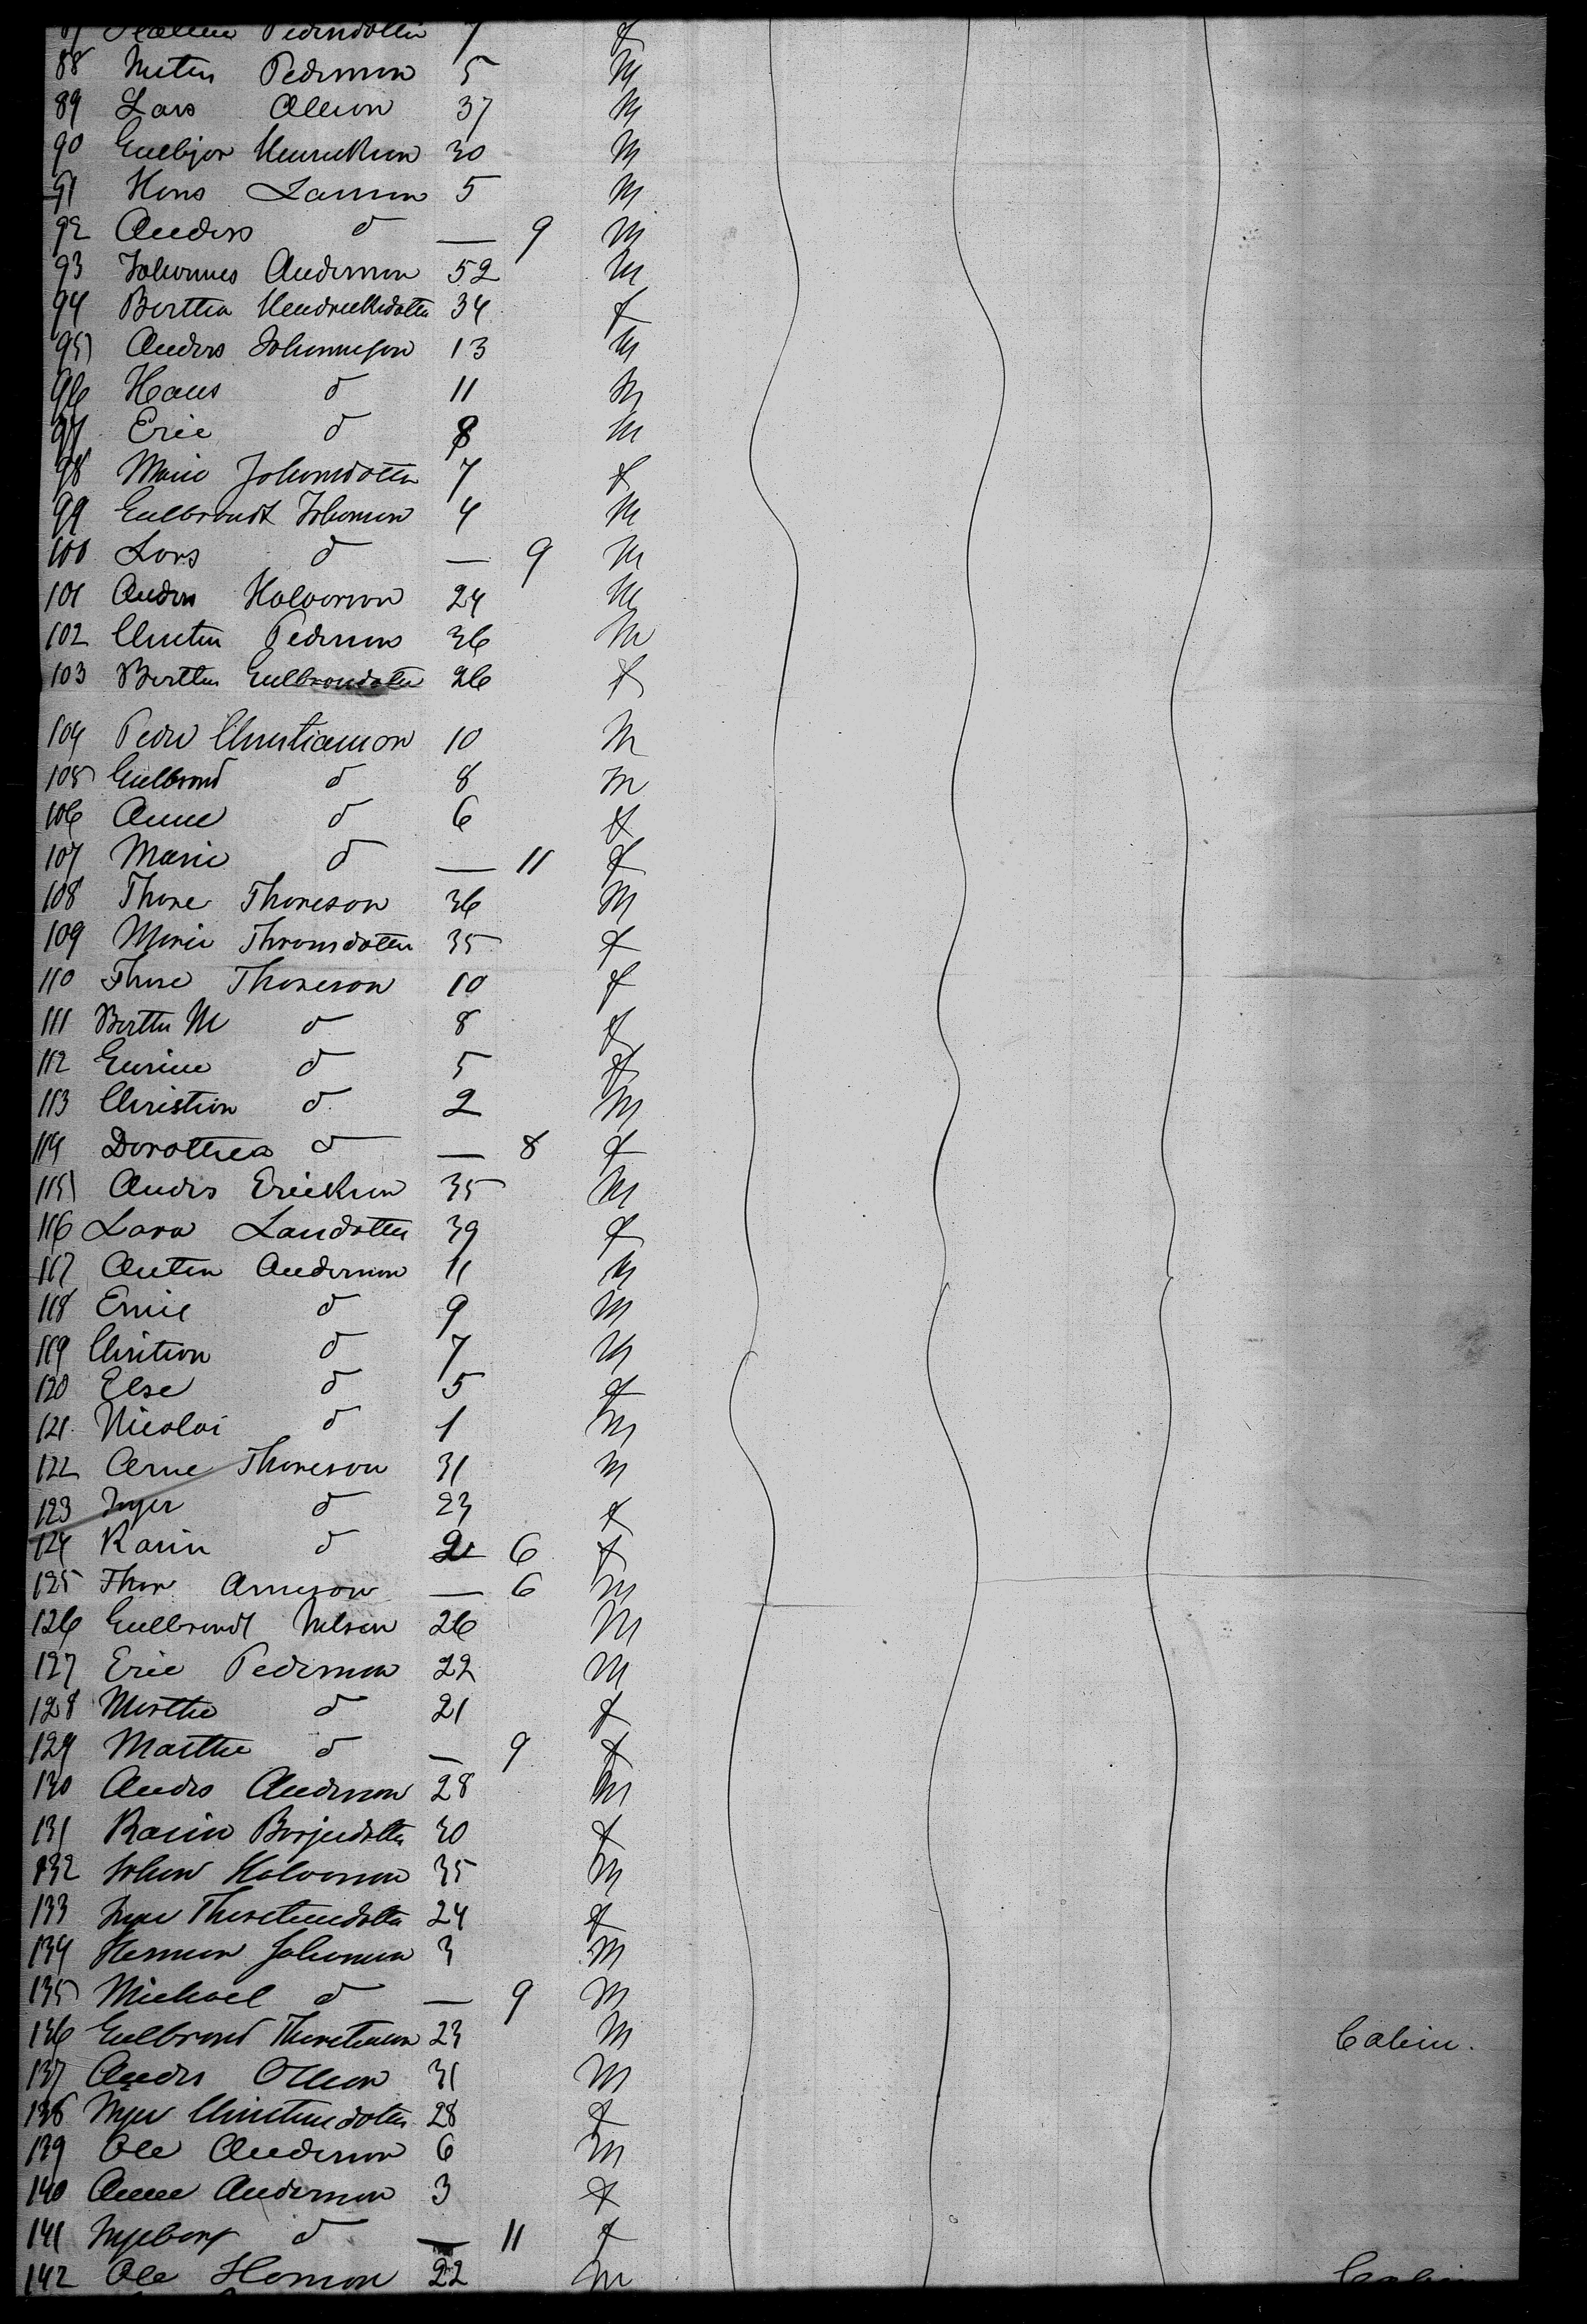 87 Pedersdotter 7 f
88 Pederson 5 M
89 Lars Olleson 37 M
90 Gulbjor Henrickson 30 M
91 Hans Larsson 5 M
92 Anders d — 9 M
93 Johannes Anderson 52 M
94 Bertha Hendricksdotter 34 f
95 Anders Johanneson 13 M
96 Hans d 11 M
97 Eric d 8 M
98 Marie Johansdotter 7 f
99 Gulbrandt Johanson 4 M
100 Lars d — 9 M
101 Anders Halvorson 24 M
102 Christen Pederson 36 M
103 Berthe Gulbrondotter 26 f
104 Peder Christianson 10 M
105 Gulbrand d 8 M
106 Anne d 6 f
107 Marie d — 11 f
108 Thore Thoreson 36 M
109 Marie Thronsdotter 35 f
110 Thore Thoreson 10 f
111 Berthe M d 8 f
112 d 5 f
113 Christian d 2 M
114 Dorothea d — 8 f
115 Anders Erickson 35 M
116 Lava Larsdotter 39 f
117 Anton Anderson 11 M
118 Emil d 9 M
119 Christian d 7 M
120 Else d 5 f
121 Nicolai d 1 M
122 Arne Thoreson 31 M
123 Inger d 23 f
124 Karin d 2 6 f
125 Thor Arneson — 6 M
126 Gulbrandt Nelson 26 M
127 Eric Pederson 22 M
128 Marthe d 21 f
129 Marthe d — 9 f
130 Anders Anderson 28 M
131 Karin Borjesdotter 30 f
132 Johan Halvorson 35 M
133 Inger 24 f
134 Herman Johanson 3 M
135 Michael d — 9 M
136 Gulbrand 23 M Cabin.
137 Anders Olleson 31 M
138 Inger Christensdotter 28 f
139 Ole Anderson 6 M
140 Anne Anderson 3 f
141 Ingeborg d — 11 f
142 Ole Hanson 22 M Cabin